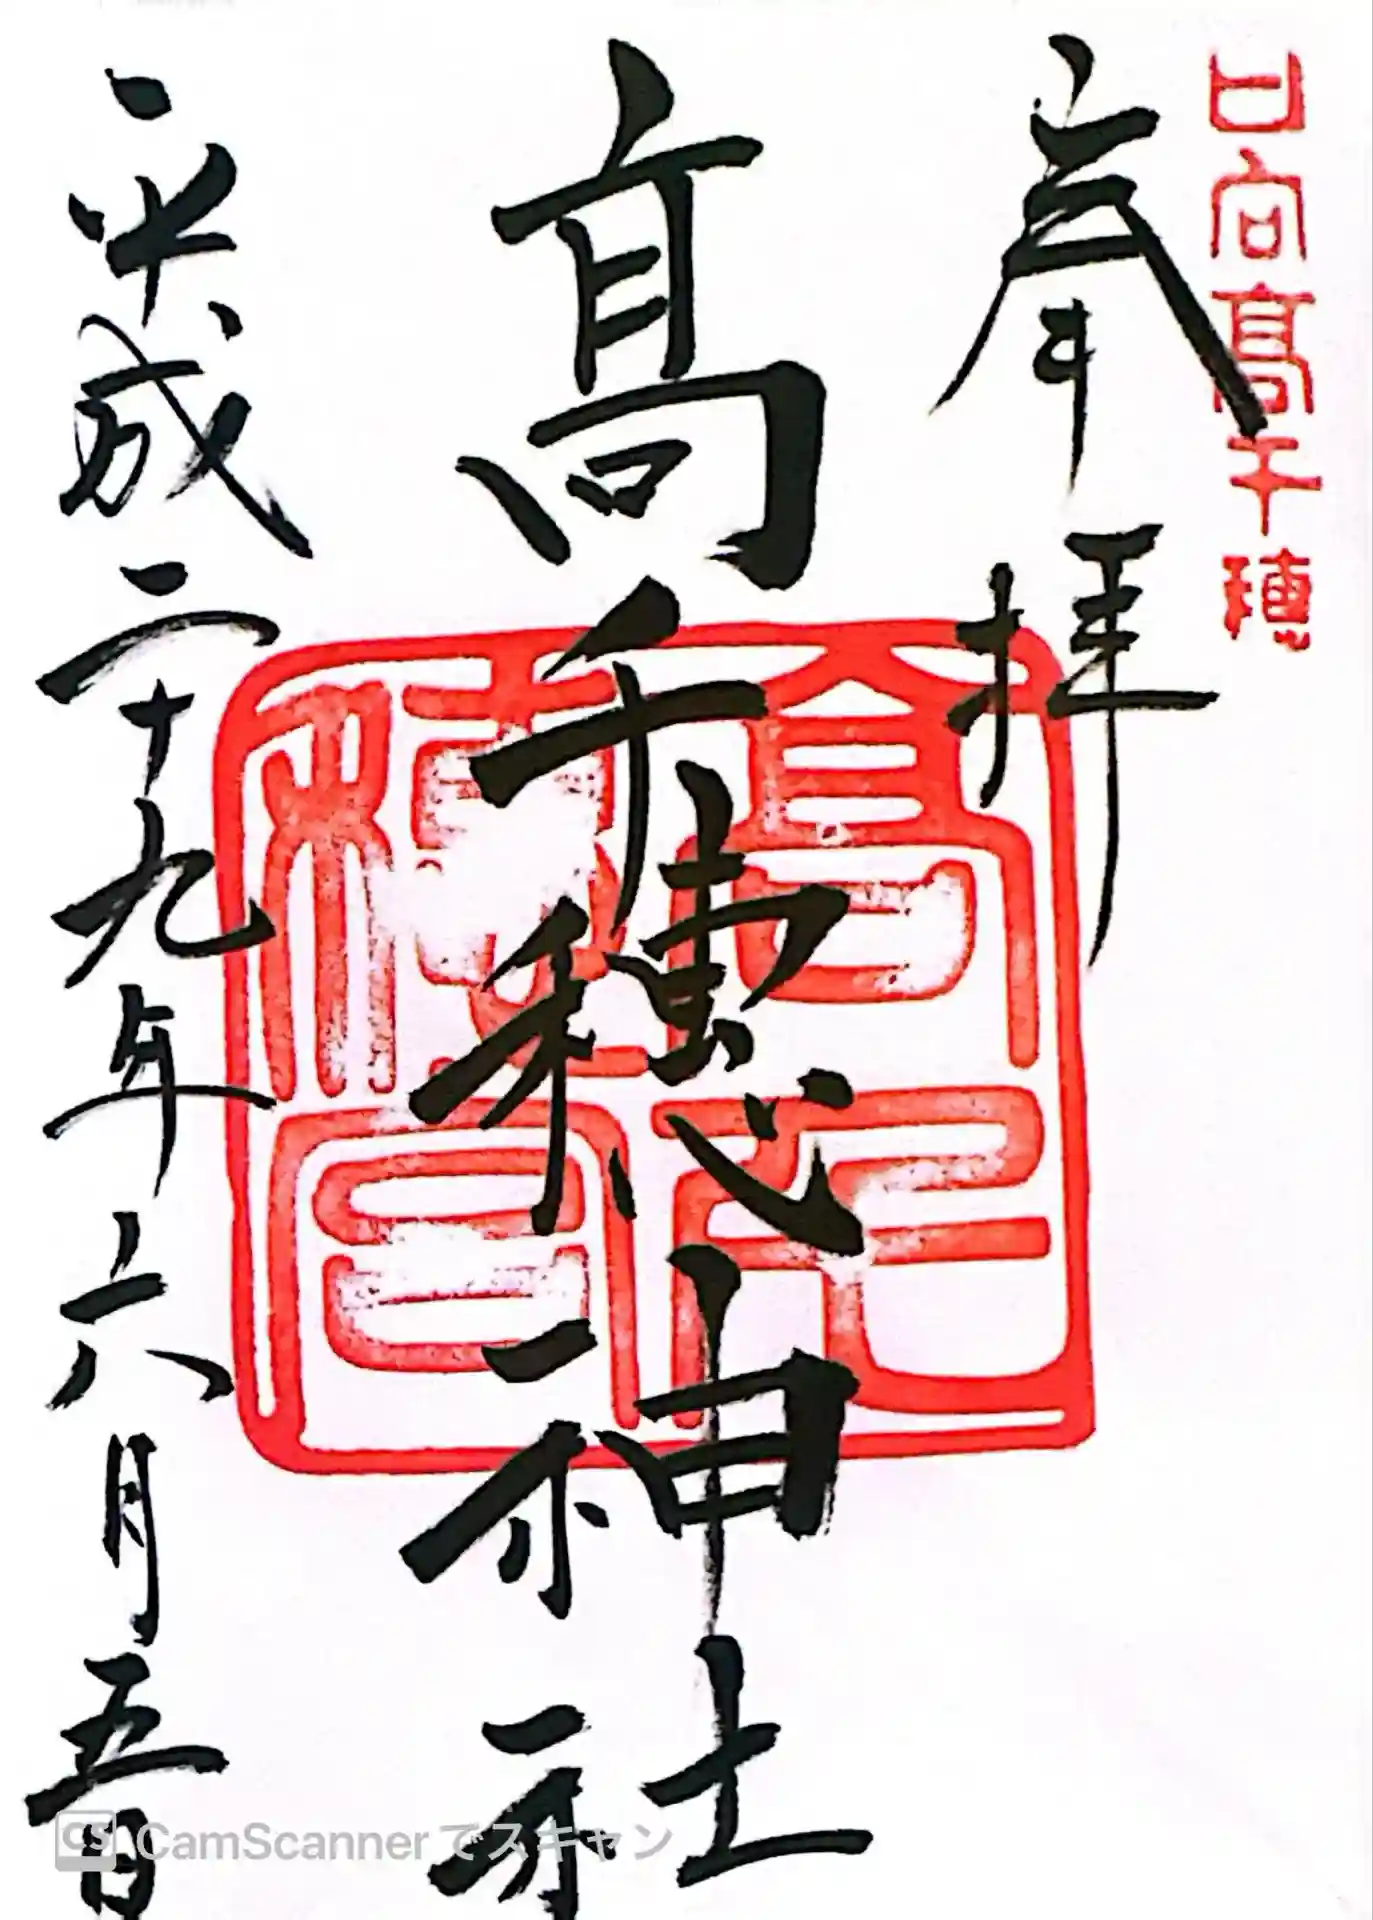 日向高千穂
奉拝
髙千穂神社
平成二十九年六月五日
CS CamScannerでスキャン